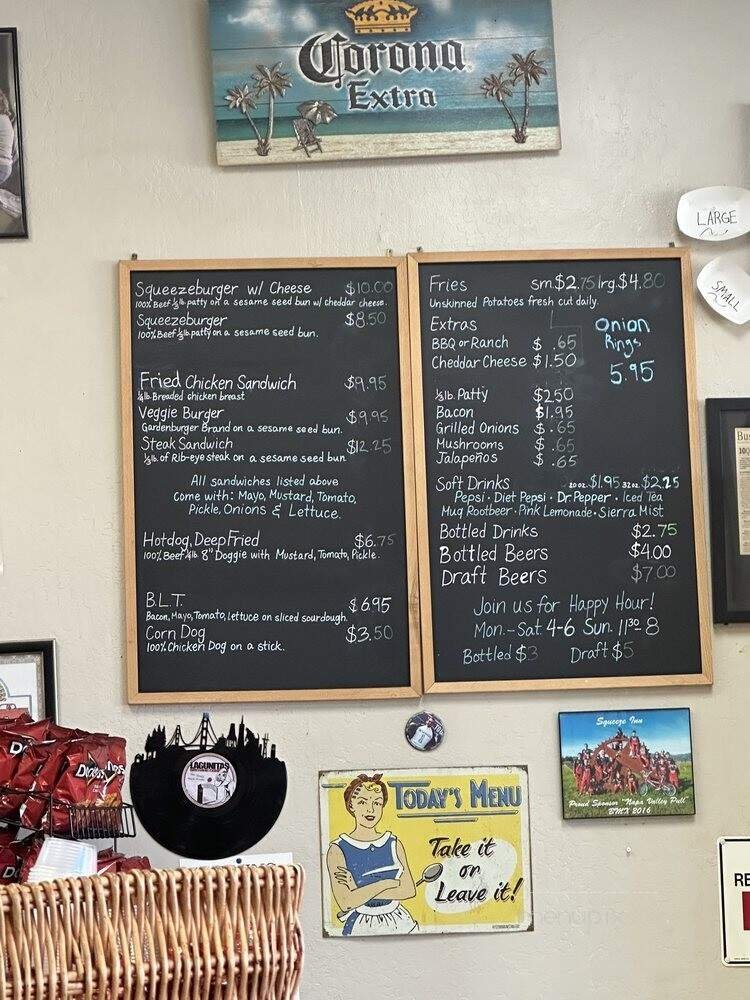 Corona
Extra
LARGE
SMALL
Squeezeburger w/ Cheese $10.00
100% Beef ⅓lb patty on a sesame seed bun w/ cheddar cheese.
Squeezeburger $8.50
100% Beef ⅓lb patty on a sesame seed bun.
Fried Chicken Sandwich $9.95
¼lb Breaded chicken breast
Veggie Burger $9.95
Gardenburger Brand on a sesame seed bun.
Steak Sandwich $12.25
⅓lb. of Rib-eye steak on a sesame seed bun
All sandwiches listed above
come with: Mayo, Mustard, Tomato,
Pickle, Onions & Lettuce.
Hotdog, Deep Fried $6.75
100% Beef ¼lb 8" Doggie with Mustard, Tomato, Pickle.
B.L.T. $6.95
Bacon, Mayo, Tomato, Lettuce on sliced sourdough.
Corn Dog $3.50
100% Chicken Dog on a stick.
Fries sm.$2.75 lrg.$4.80
Unskinned Potatoes fresh cut daily.
Extras
BBQ or Ranch $ .65
Cheddar Cheese $1.50
Onion
Rings
5.95
⅓lb. Patty $2.50
Bacon $1.95
Grilled Onions $ .65
Mushrooms $ .65
Jalapeños $ .65
Soft Drinks 20oz. $1.95 32oz. $2.25
Pepsi · Diet Pepsi · Dr Pepper · Iced Tea
Mug Rootbeer · Pink Lemonade · Sierra Mist
Bottled Drinks $2.75
Bottled Beers $4.00
Draft Beers $7.00
Join us for Happy Hour!
Mon.-Sat. 4-6 Sun. 11³⁰-8
Bottled $3 Draft $5
LAGUNITAS
Squeeze Inn
Proud Sponsor "Napa Valley Pull"
BMX 2016
TODAY'S MENU
Take it
or
Leave it!
Doritos
RE